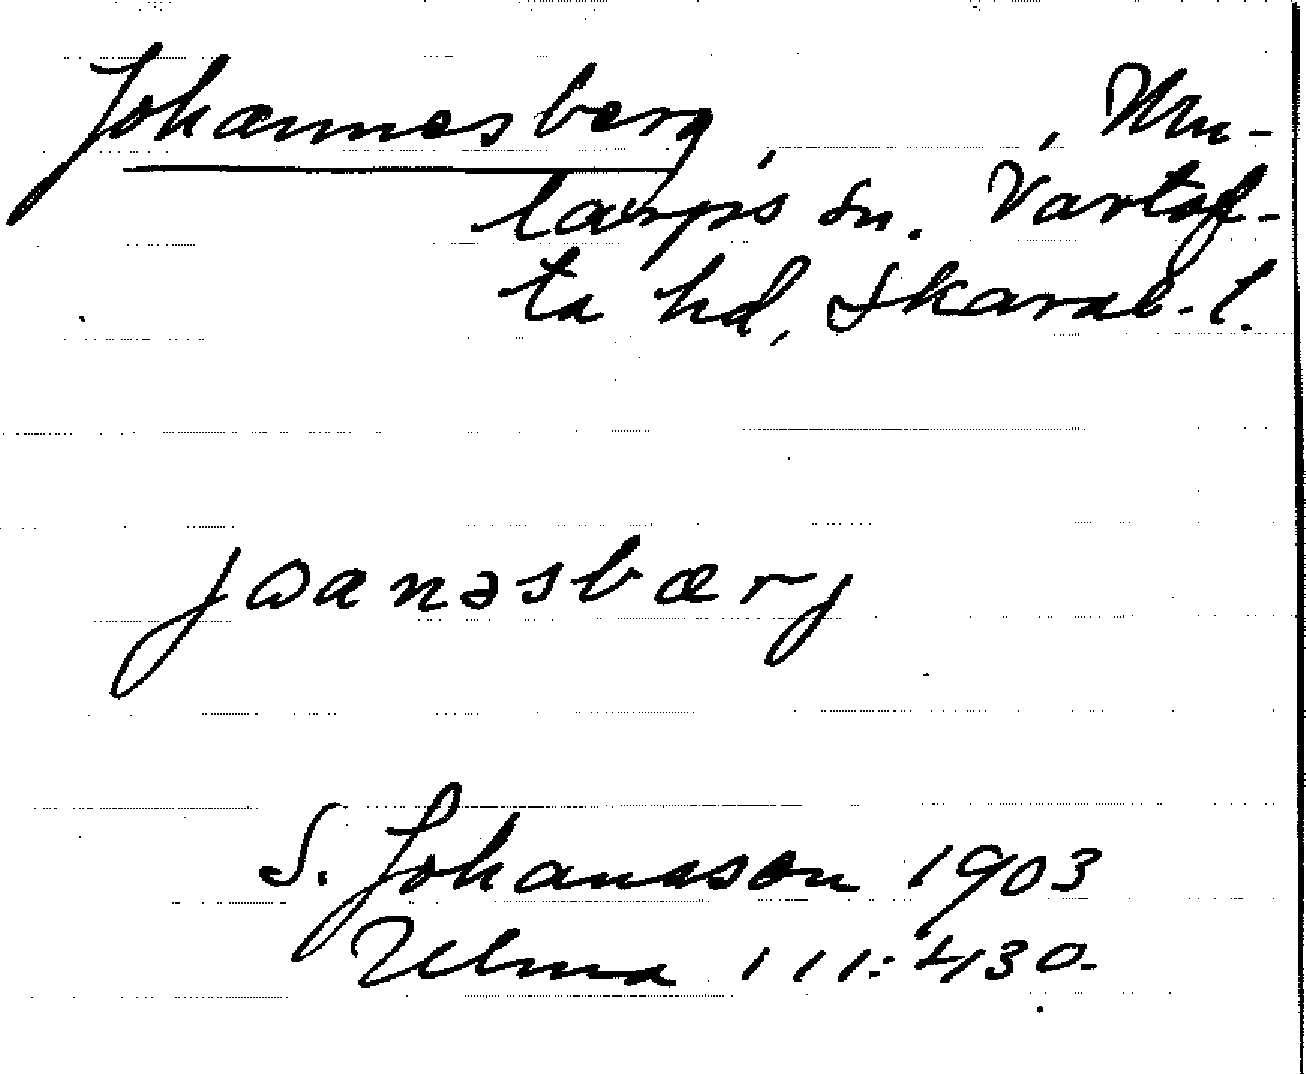 Johannesberg, , Mu-
larps sn. Vartof-
ta hd, Skarab. l.
jɷanəsbærj
S. Johansson 1903
Ulma 111:430.